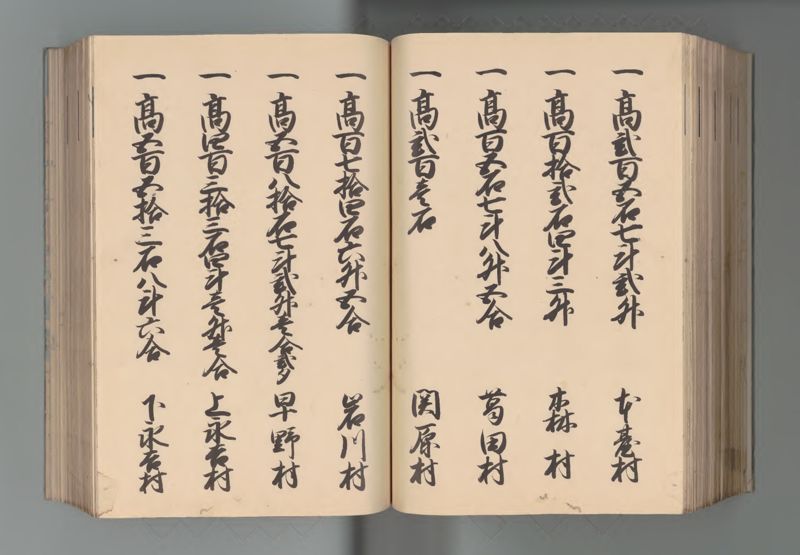 一 高弐百五石七斗弐升 本台村
一 高百拾弐石四斗三升 森村
一 高百五石七斗八升五合 葛田村
一 高弐百壱石 関原村
一 高百七拾四石六升五合 岩川村
一 高五百八拾石七斗弐升壱合弐夕 早野村
一 高四百三拾三石四斗壱升壱合 上永吉村
一 高五百五拾三石八斗六合 下永吉村